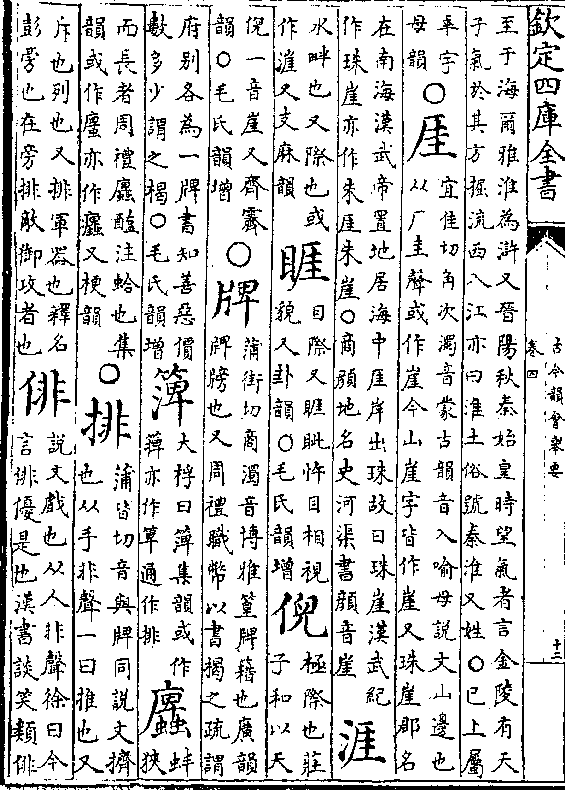 欽定四庫全書
古今韻會舉要
卷四
十二
至于海爾雅淮為滸又晉陽秋秦始皇時望氣者言金陵有天
子氣於其方掘流西入江亦曰淮土俗號秦淮又姓〇已上屬
平字
母韻
〇厓
宜佳切角次濁音蒙古韻音入喻母說文山邊也
从厂圭聲或作崖今山崖字皆作崖又珠崖郡名
在南海漢武帝置地居海中厓岸出珠故曰珠崖漢武紀
作珠崖亦作朱厓朱崖〇商顏地名史河渠書顏音崖
涯
水畔也又際也或
作漄又支麻韻
睚
目際又睚眦忤目相視
貌又卦韻〇毛氏韻增
倪
極際也莊
子和以天
倪一音崖又齊霽
韻〇毛氏韻增
〇牌
蒲街切商濁音博雅篁牌籍也廣韻
牌牓也又周禮職幣以書楬之疏謂
府別各為一牌書知善惡價
數多少謂之楬〇毛氏韻增
簰
大桴曰簰集韻或作
亦作箄通作排
蠯
蚌
狹
而長者周禮蠯醢注蛤也集
韻或作亦作又梗韻
〇排
蒲皆切音與牌同說文擠
也从手非聲一曰推也又
斥也列也又排軍器也釋名
彭旁也在旁排敵御攻者也
俳
說文戲也从人非聲徐曰今
言俳優是也漢書談笑類俳